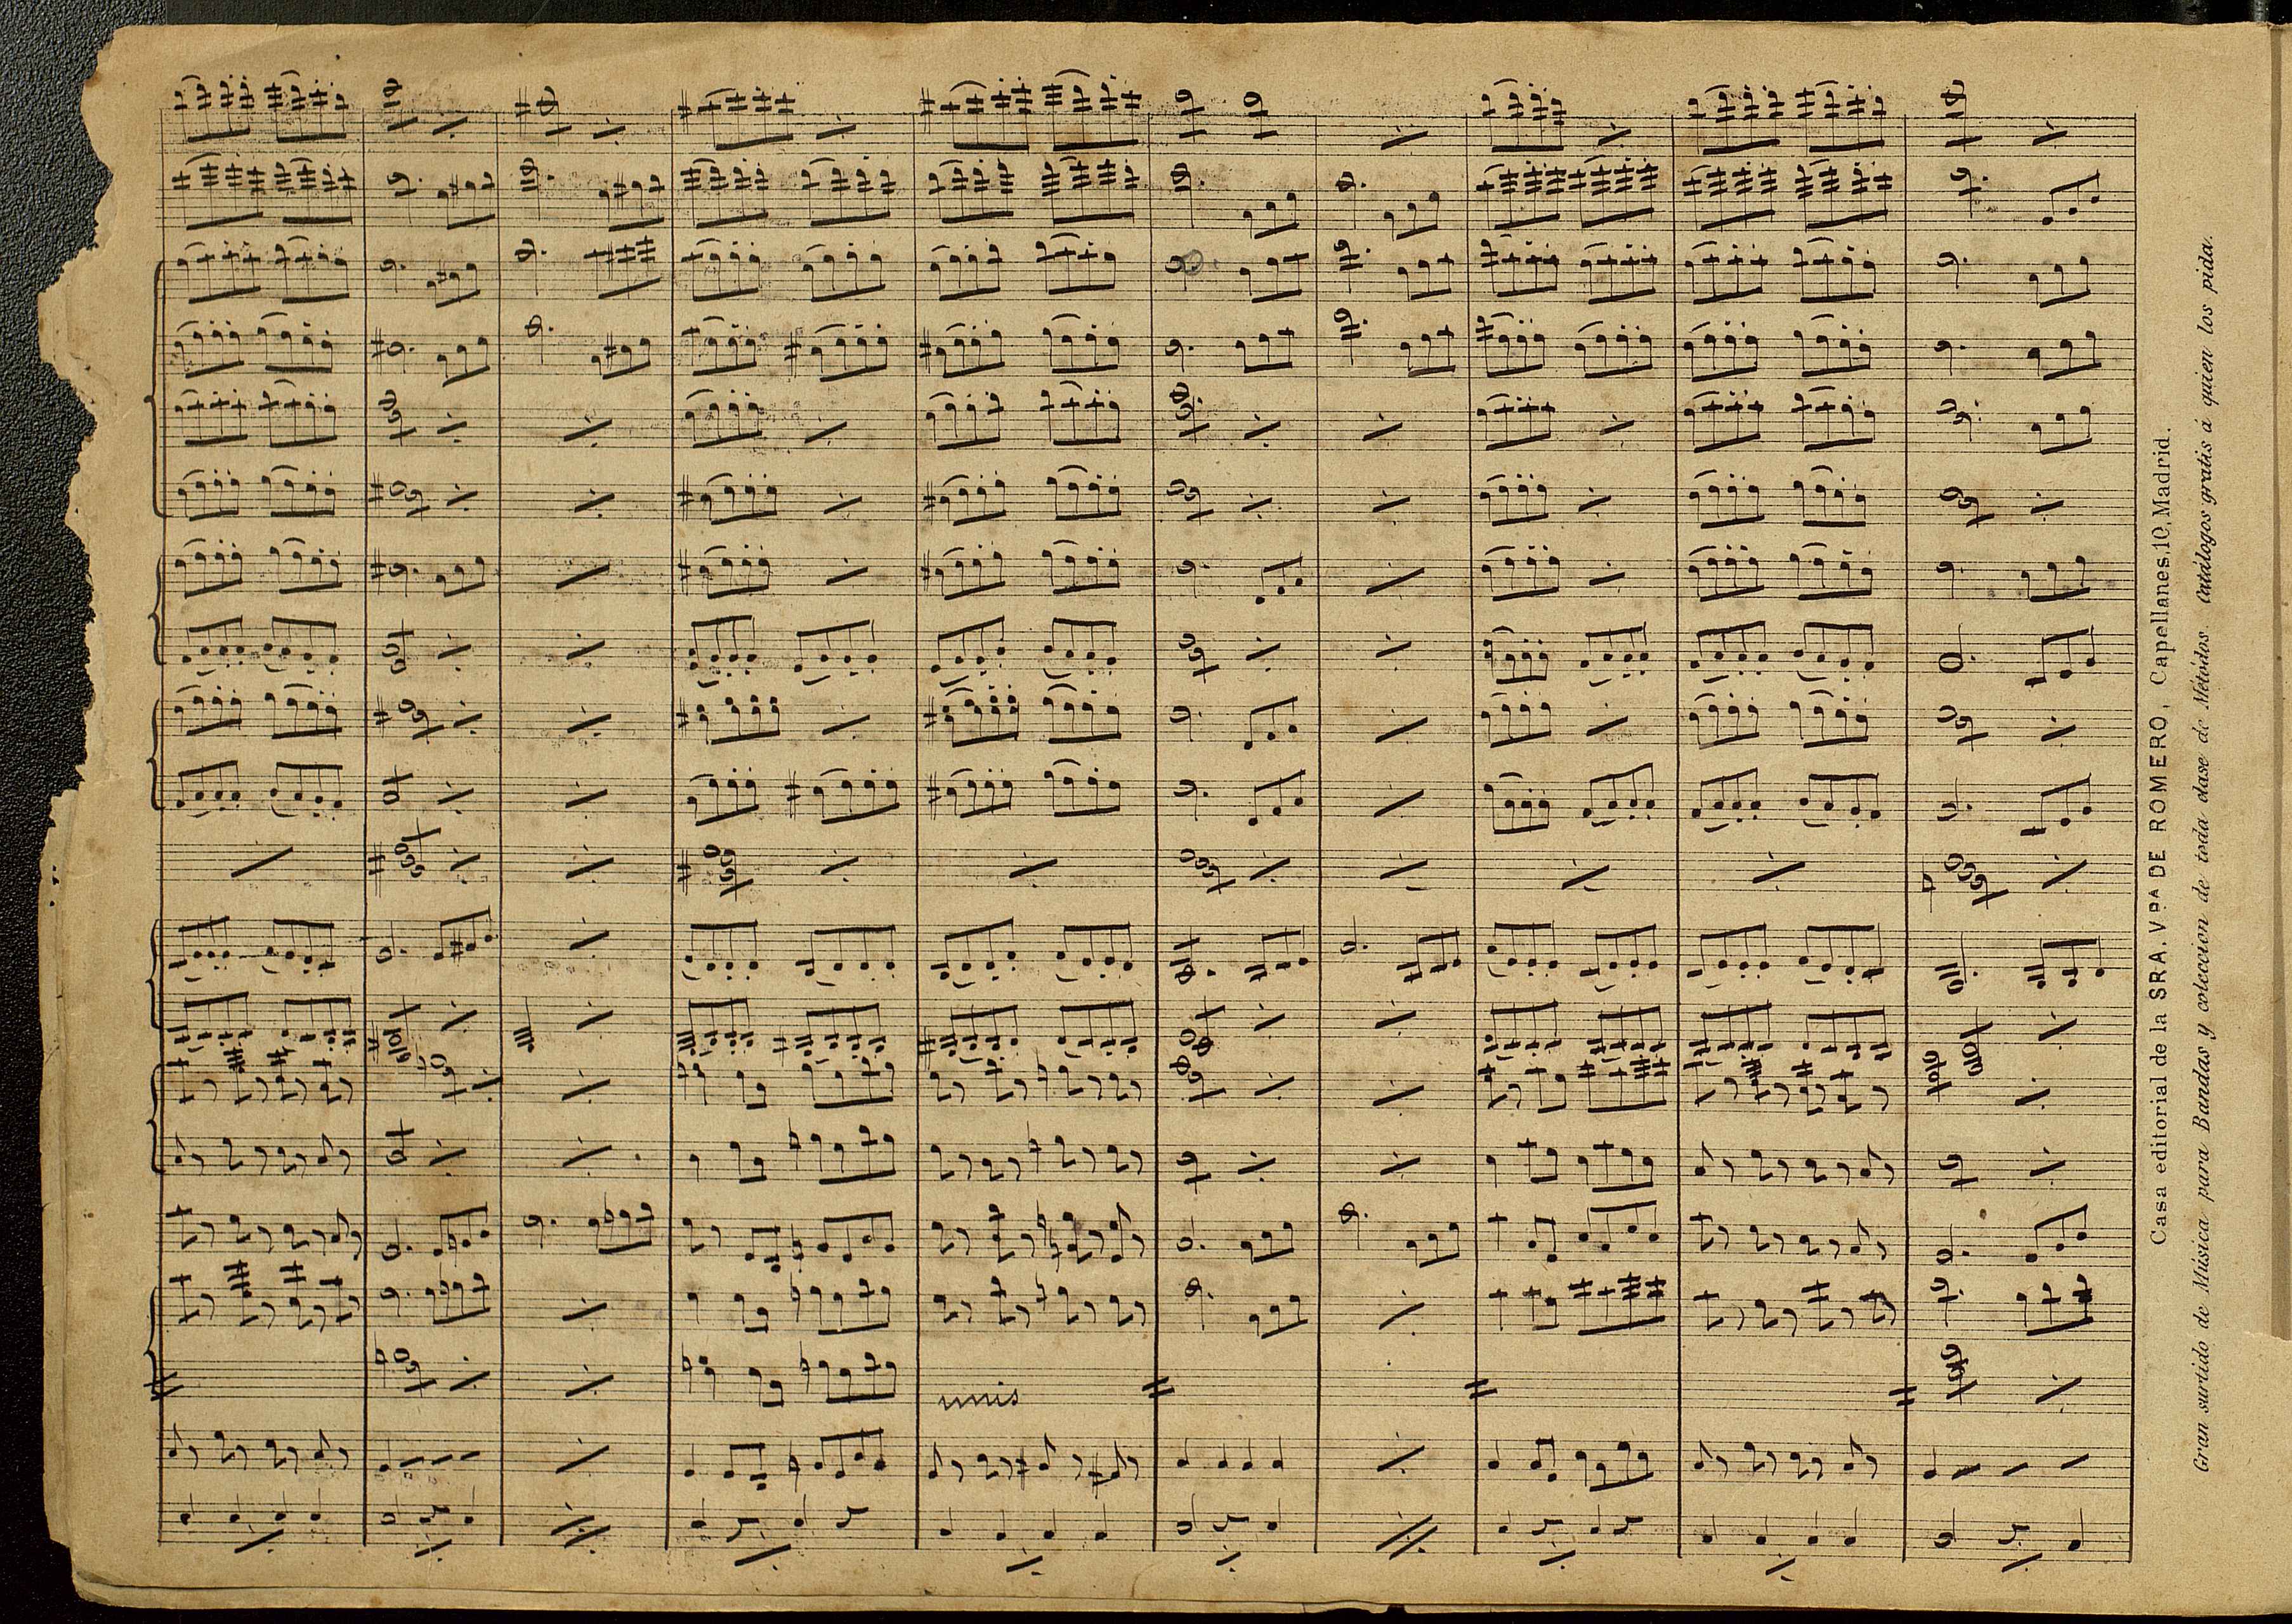 unis
Casa editorial de la SRA. V.DA DE ROMERO, Capellanes, 10, Madrid.
Gran surtido de Música para Bandas y coleccion de toda clase de Métodos. Catálogos gratis á quien los pida.